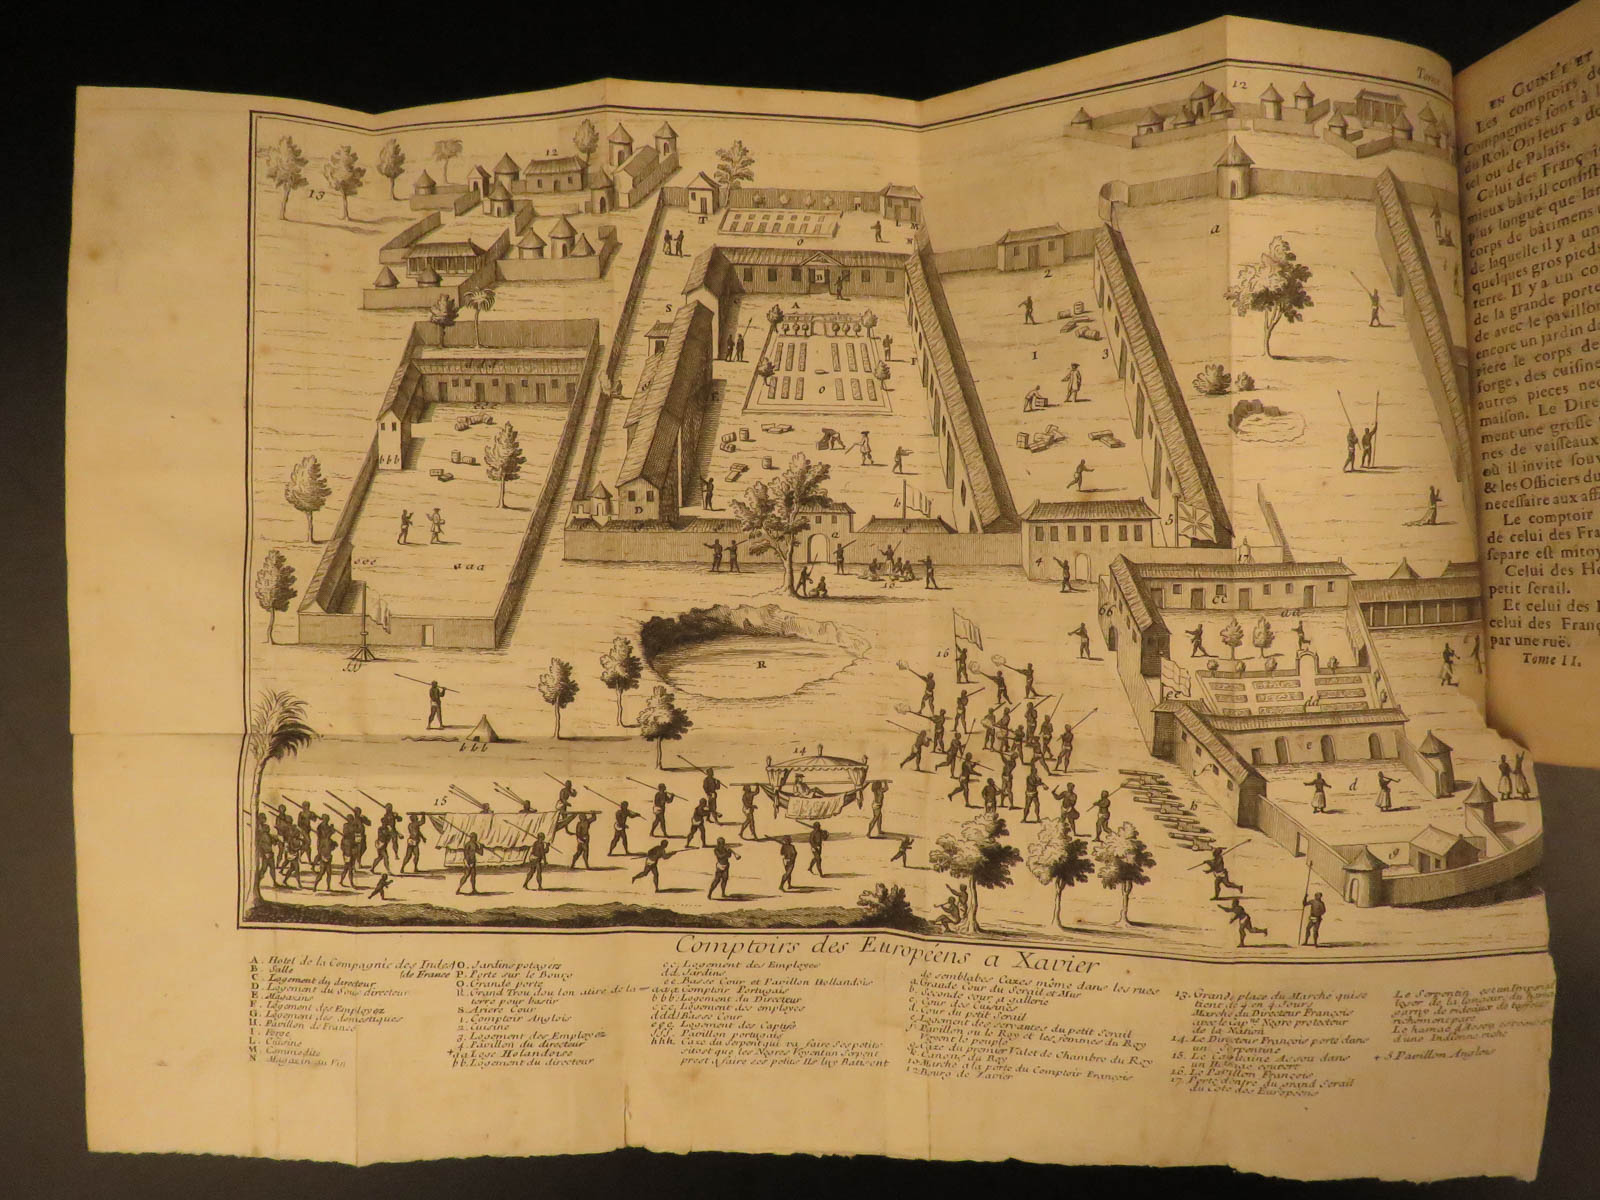 Tome
12
12
13
14
15
16
R
Comptoirs des Européens a Xavier
A. Hotel de la Compagnie des Indes
de France
B. Salle
C. Logement du directeur
D. Logement du Sous directeur
E. Magasins
F. Logement des Employez
G. Logement des domestiques
H. Pavillon de France
I. Forge
L. Cuisine
M. Commodité
N. Magazin au Vin
O. Jardins potagers
P. Porte sur le Bourg
Q. Grande porte
R. Grand Trou dou lon atire de la
terre pour bastir
S. Ariere Cour
1. Comptoir Anglois
2. Cuisine
3. Logement des Employez
4. Pavillon du directeur
aa Loge Holandoise
bb. Logement du directeur
cc. Logement des Employes
dd. Jardins
ee. Basse Cour et Pavillon Hollandois
aaa Comptoir Portugais
bbb. Logement du Directeur
ccc. Logement des employes
ddd. Basse Cour
eee. Logement des Captifs
fff. Pavillon portugais
hhh. Caxe du Serpent qui va faire ses petits
sitost que les Negres Voyent un Serpent
prest a faire ses petits Ils luy Batissent
de semblabes Caxes même dans les rues
a. Grande Cour du Serail et Mur
b. Seconde cour a gallerie
c. Cour des Cuisines
d. Cour du petit Serail
e. Logement des servantes du petit Serail
f. Pavillon ou le Roy et les femmes du Roy
Voyent le peuple
g. Caze du premier Valet de Chambre du Roy
h. Canons du Roy
10. Marché a la porte du Comptoir François
12. Bourg de Xavier
13. Grande place du Marché qui se
tient de 4 en 4 Jours
Marche du Directeur François
avec le Capne Negre protecteur
de la Nation
14. Le Directeur François porté dans
un Serpentine
15. Le Capitaine Assou dans
un Hamac couvert
16. Le Pavillon François
17. Porte d'entre du grand Serail
du Coté des Européens
5. Pavillon Anglois
EN GUINÉE ET
Les comptoirs de
Compagnies sont à l
du Roi. On leur a do
tel ou de Palais.
Celui des François
mieux bâti, il consist
plus longue que lar
corps de bâtimens
de laquelle il y a un
quelques gros pieds
terre. Il y a un co
de la grande porte
de avec le pavillon
encore un jardin da
riere le corps de
forge, des cuisine
autres pieces nec
maison. Le Dire
ment une grosse
nes de vaisseaux
où il invite souv
& les Officiers du
necessaire aux aff
Le comptoir
de celui des Fra
separe est mitoy
Celui des Ho
petit serail.
Et celui des
celui des Franç
par une ruë.
Tome II.